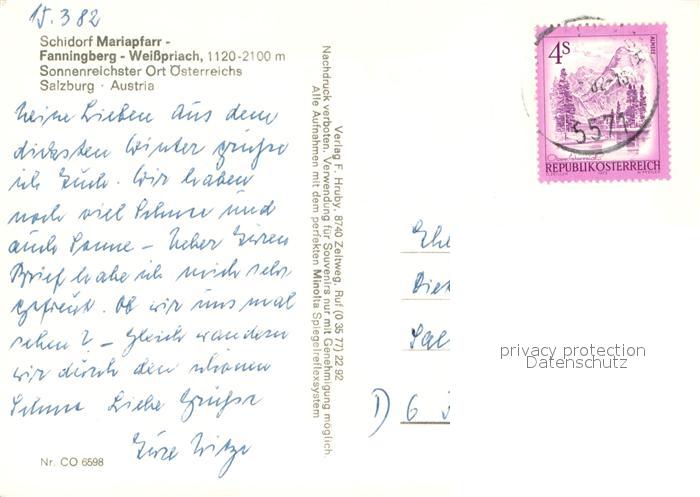 15.3.82
Schidorf Mariapfarr -
Fanningberg - Weißpriach, 1120-2100 m
Sonnenreichster Ort Österreichs
Salzburg · Austria
Meine Lieben Aus dem
dicksten Winter grüße
ich Euch. Wir haben
noch viel Schnee und
auch Sonne – Ueber Euren
Brief habe ich mich sehr
gefreut. Ob wir uns mal
sehen? – Gleich wandern
wir durch den schönen
Schnee Liebe Grüsse
Eure
Nr. CO 6598
Verlag F. Hruby, 8740 Zeltweg, Ruf (0 35 77) 22 92
Nachdruck verboten. Verwendung für Souvenirs nur mit Genehmigung möglich.
Alle Aufnahmen mit dem perfekten Minolta Spiegelreflexsystem
4S
ALMSEE
5571
REPUBLIK ÖSTERREICH
D) 6
privacy protection
Datenschutz